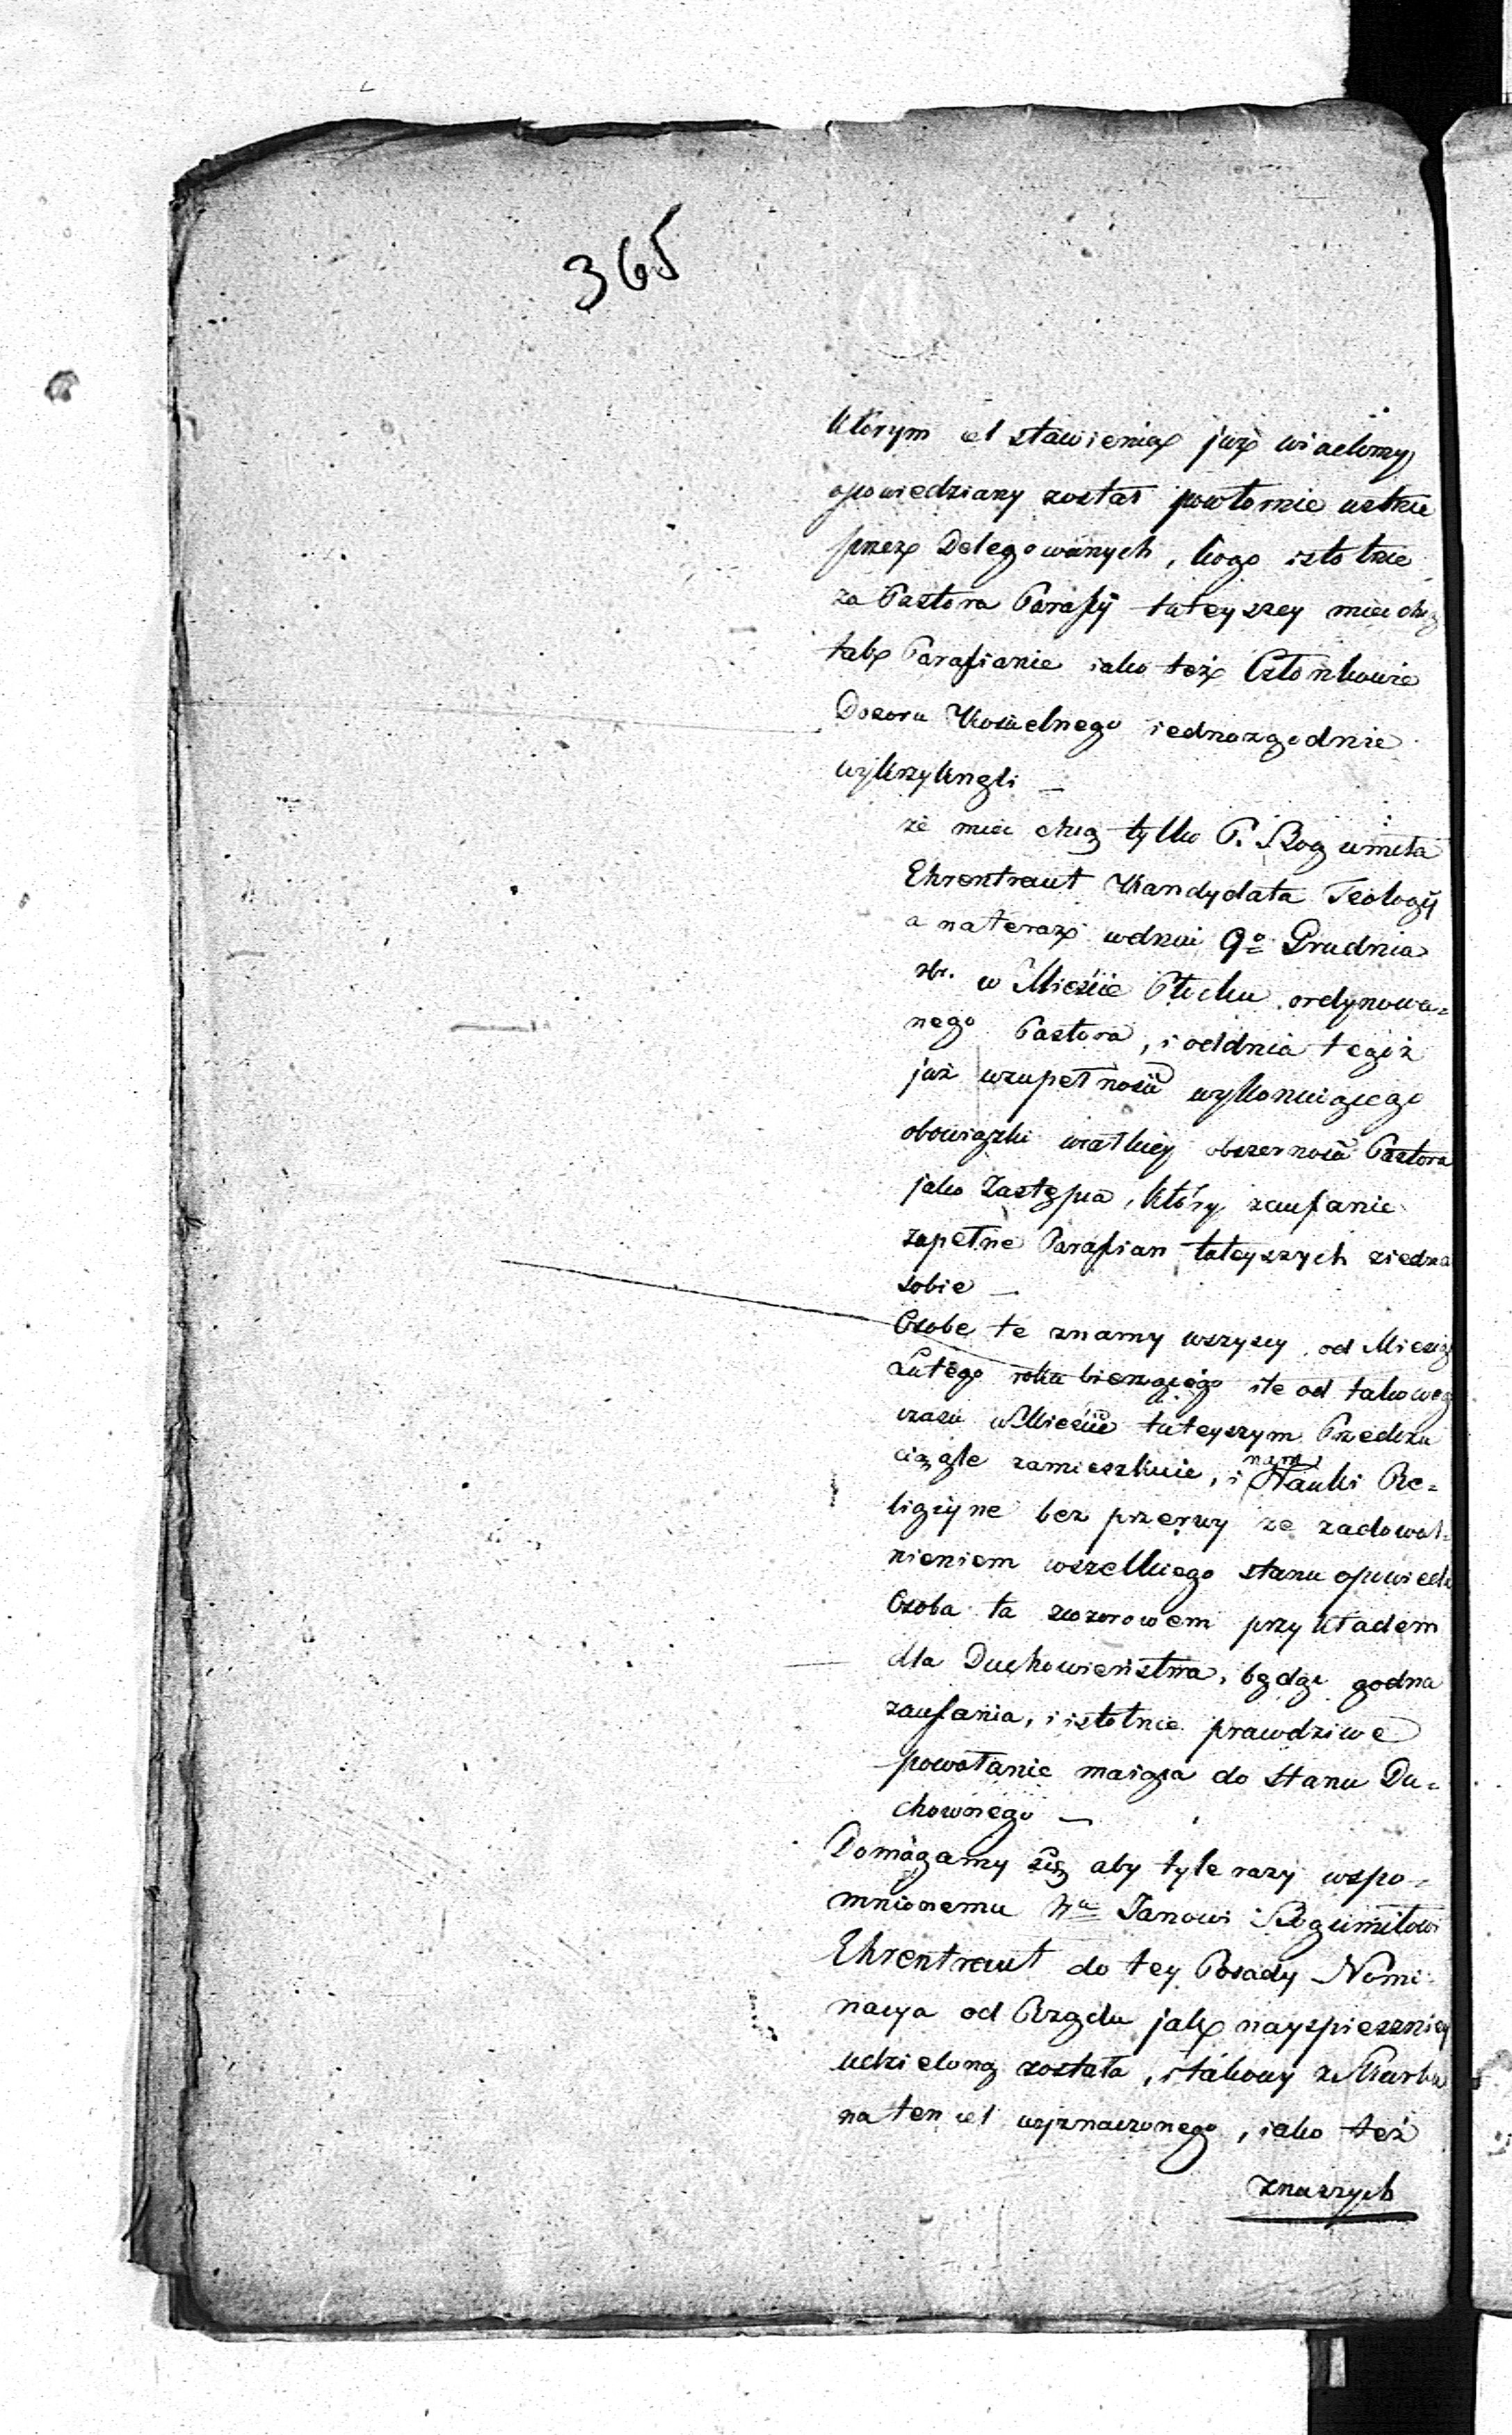 365
którym cel stawienia już wiadomy
opowiedziany został powtornie ustnie
przez Delegowanych, kogo istotnie
za Pastora Parafij tuteyszey mieć chcą
tak Parafianie iako też Członkowie
Dozoru Kościelnego iednozgodnie
wykrzyknęli —
że mieć chcą tylko P. Bogumiła
Ehrentraut Kandydata Teologij
a na teraz wdniu 9o Grudnia
rb. w Mieście Płocku ordynowa=
nego Pastora, i oddnia tegoż
już wzupełności wykonuiącego
obowiązki wcałkiey obszerności Pastora
jako Zastępca, który zaufanie
zupełne Parafian tuteyszych ziedna
sobie —
Osobe te znamy wszyscy od Miesią
Lutego roku bieżącego ile od takoweg
czasu wMieście tuteyszym Przedczu
ciągle zamieszkuie, i nam Nauki Re=
ligiyne bez przerwy ze zadowol=
nieniem wszelkiego stanu opowieda
Osoba ta zwzorowem przykładem
dla Duchowieństwa, będąc godna
zaufania, i istotnie prawdziwe
powołanie maiąca do stanu Du=
chownego —
Domagamy się aby tyle razy wspo=
mnionemu Janowi Bogumiłowi
Ehrentraut do tey Posady Nomi
nacya od Rządu jak nayspieszniey
udzieloną została, i takowy z
na ten cel wyznaczonego, iako też
znaszych